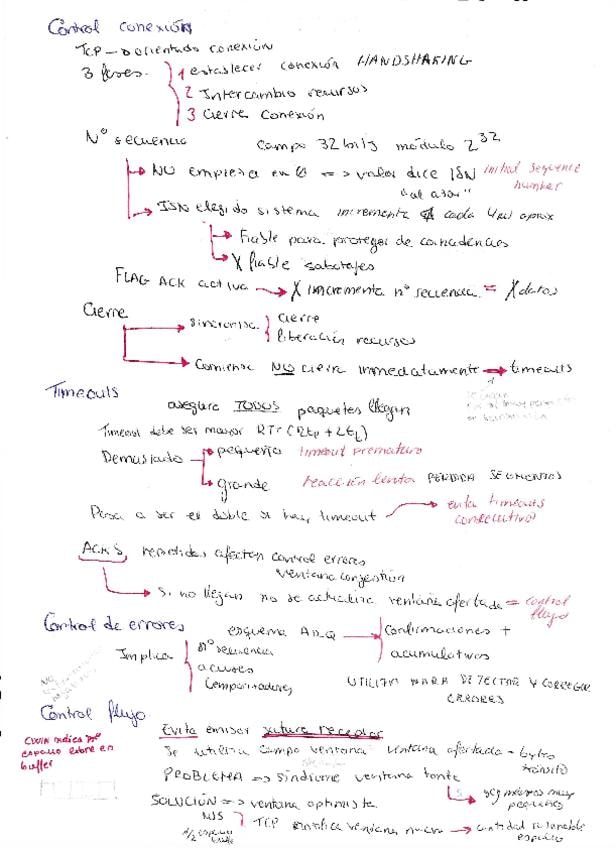 Control conexión
TCP → orientado conexión
3 fases. 1 establecer conexión HANDSHAKING
2 Intercambio recursos
3 Cierre conexión
Nº secuencia Campo 32 bits módulo 2^32
NO empieza en 0 => valor dice ISN initial sequence number
"al azar"
ISN elegido sistema incrementa cada 4ms aprox
Fiable para proteger de coincidencias
X fiable sabotajes
FLAG ACK activa → X incrementa nº secuencia = X datos
Cierre
sincroniza cierre
liberación recursos
Comienza NO cierra inmediatamente → timeouts
Timeouts
asegura TODOS paquetes llegan
Timeout debe ser mayor RTT (2tp + 2tt)
Demasiado pequeño timeout prematuro
grande reacción lenta PÉRDIDA SEGMENTOS
Pasa a ser el doble si hay timeout → evita timeouts
consecutivos
ACKS repetidos afectan control errores
ventana congestión
Si no llegan no se actualiza ventana ofertada = control
flujo
Control de errores esquema ARQ confirmaciones +
acumulativas
Implica nº secuencia
acuses
temporizadores
UTILIZA PARA DETECTAR Y CORREGIR
ERRORES
Control flujo
Evita emisor sature receptor
indica
espacio libre en
buffer
Se utiliza campo ventana ventana ofertada - bytes
tránsito
PROBLEMA => síndrome ventana tonta
seg máximos muy
pequeños
SOLUCIÓN => ventana optimista
TCP notifica ventana nueva → cantidad razonable
espacio